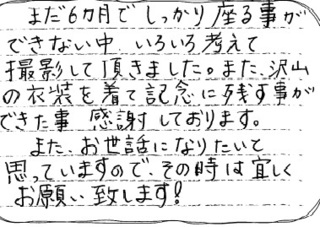 まだ6カ月でしっかり座る事が
できない中、いろいろ考えて
撮影して頂きました。また、沢山
の衣装を着て記念に残す事が
できた事　感謝しております。
また、お世話になりたいと
思っていますので、その時は宜しく
お願い致します!